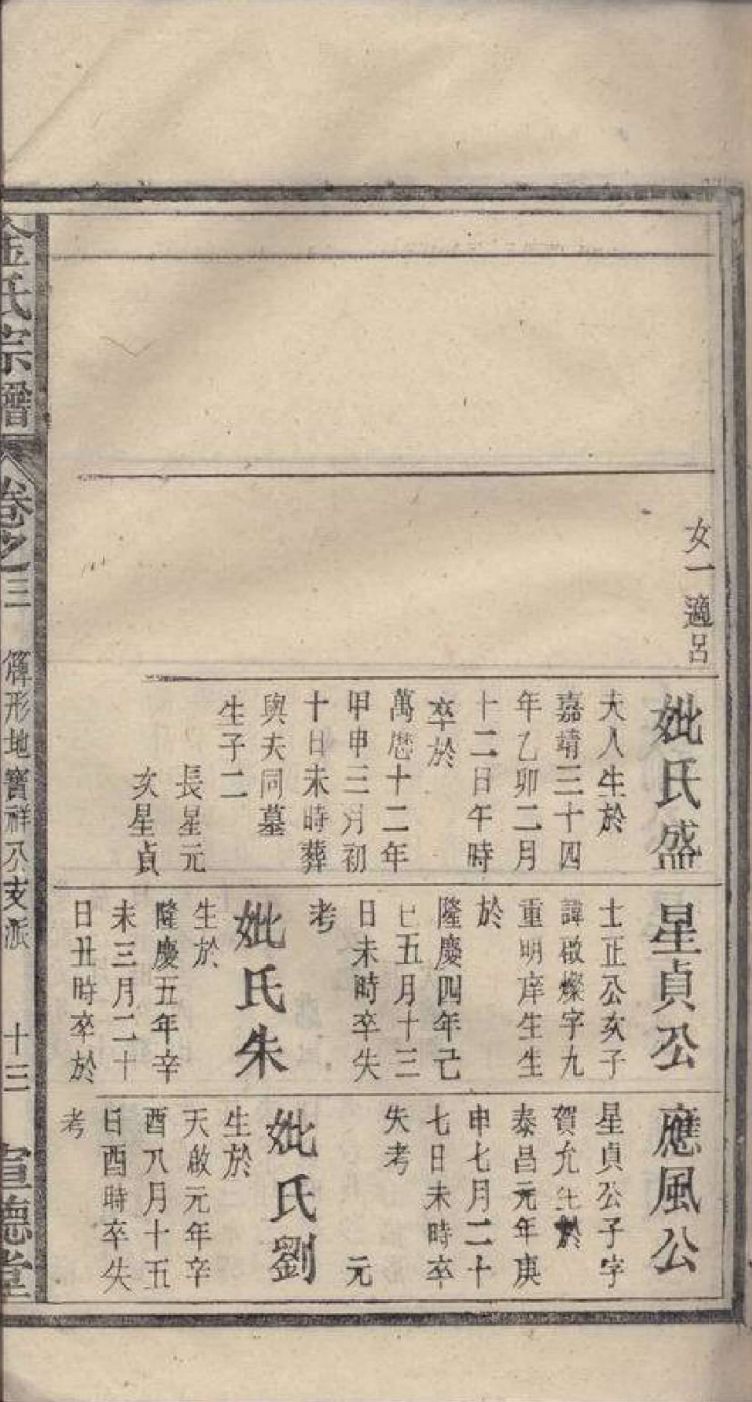 女一適呂
妣氏盛
夫人生於
嘉靖三十四
年乙卯二月
十二日午時
卒於
萬厯十二年
甲申三月初
十日未時葬
與夫同墓
生子二
長星元
次星貞
星貞公
士正公次子
諱啟燦字九
重明庠生生
於
隆慶四年己
巳五月十三
日未時卒失
考
妣氏朱
生於
隆慶五年辛
未三月二十
日丑時卒於
應風公
星貞公子字
賀允生於
泰昌元年庚
申七月二十
七日未時卒
失考
元
妣氏劉
生於
天啟元年辛
酉八月十五
日酉時卒失
考
金氏宗譜
卷之三
形地寶祥公支派
十三
宣德堂